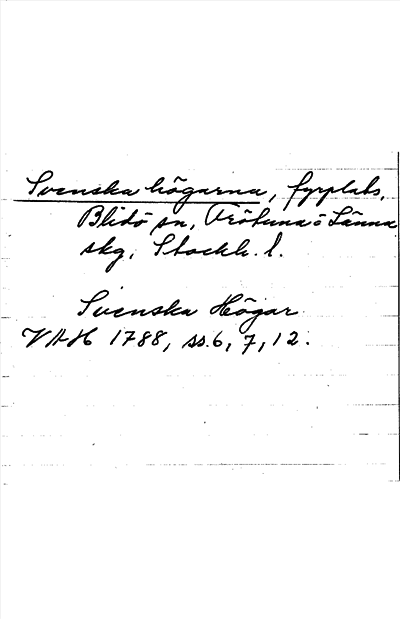 Svenska högarna, fyrplats,
Blidö sn, Frötuna o Länna
skg, Stockh. l.
Svenska Högar
VAH 1788, ss. 6, 7, 12.